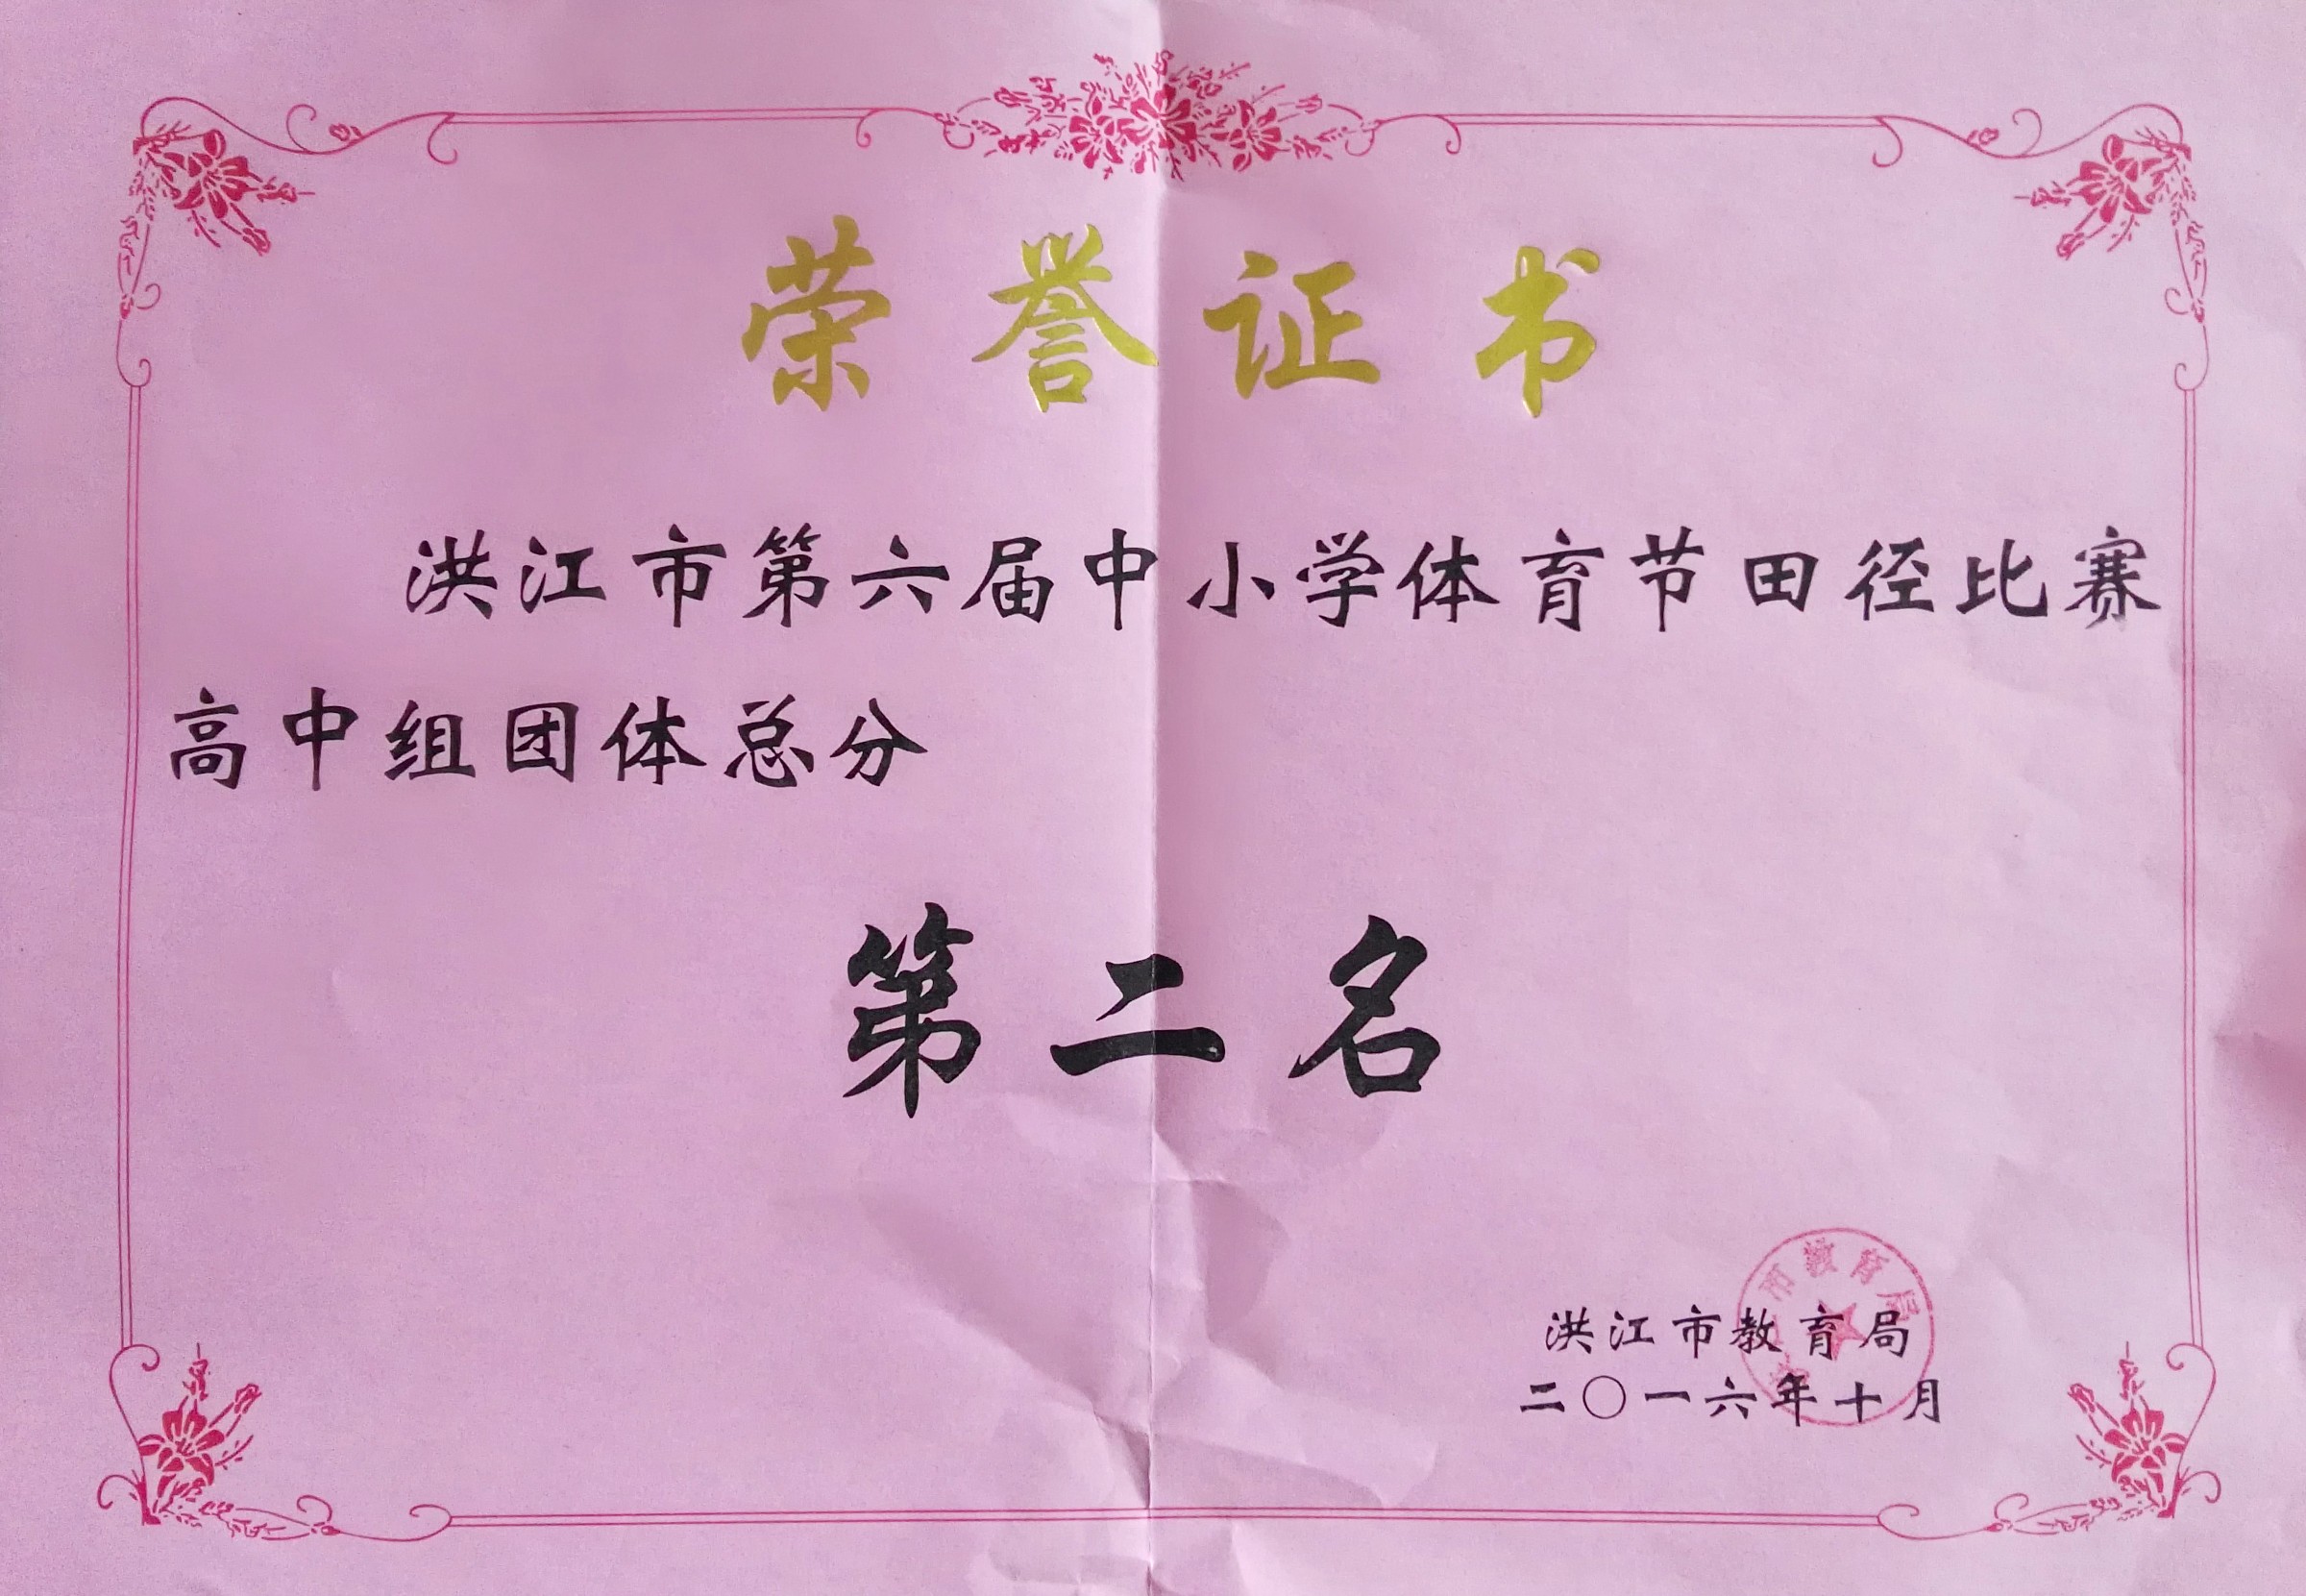 荣誉证书
洪江市第六届中小学体育节田径比赛
高中组团体总分
第二名
市教育局
洪江市教育局
二〇一六年十月